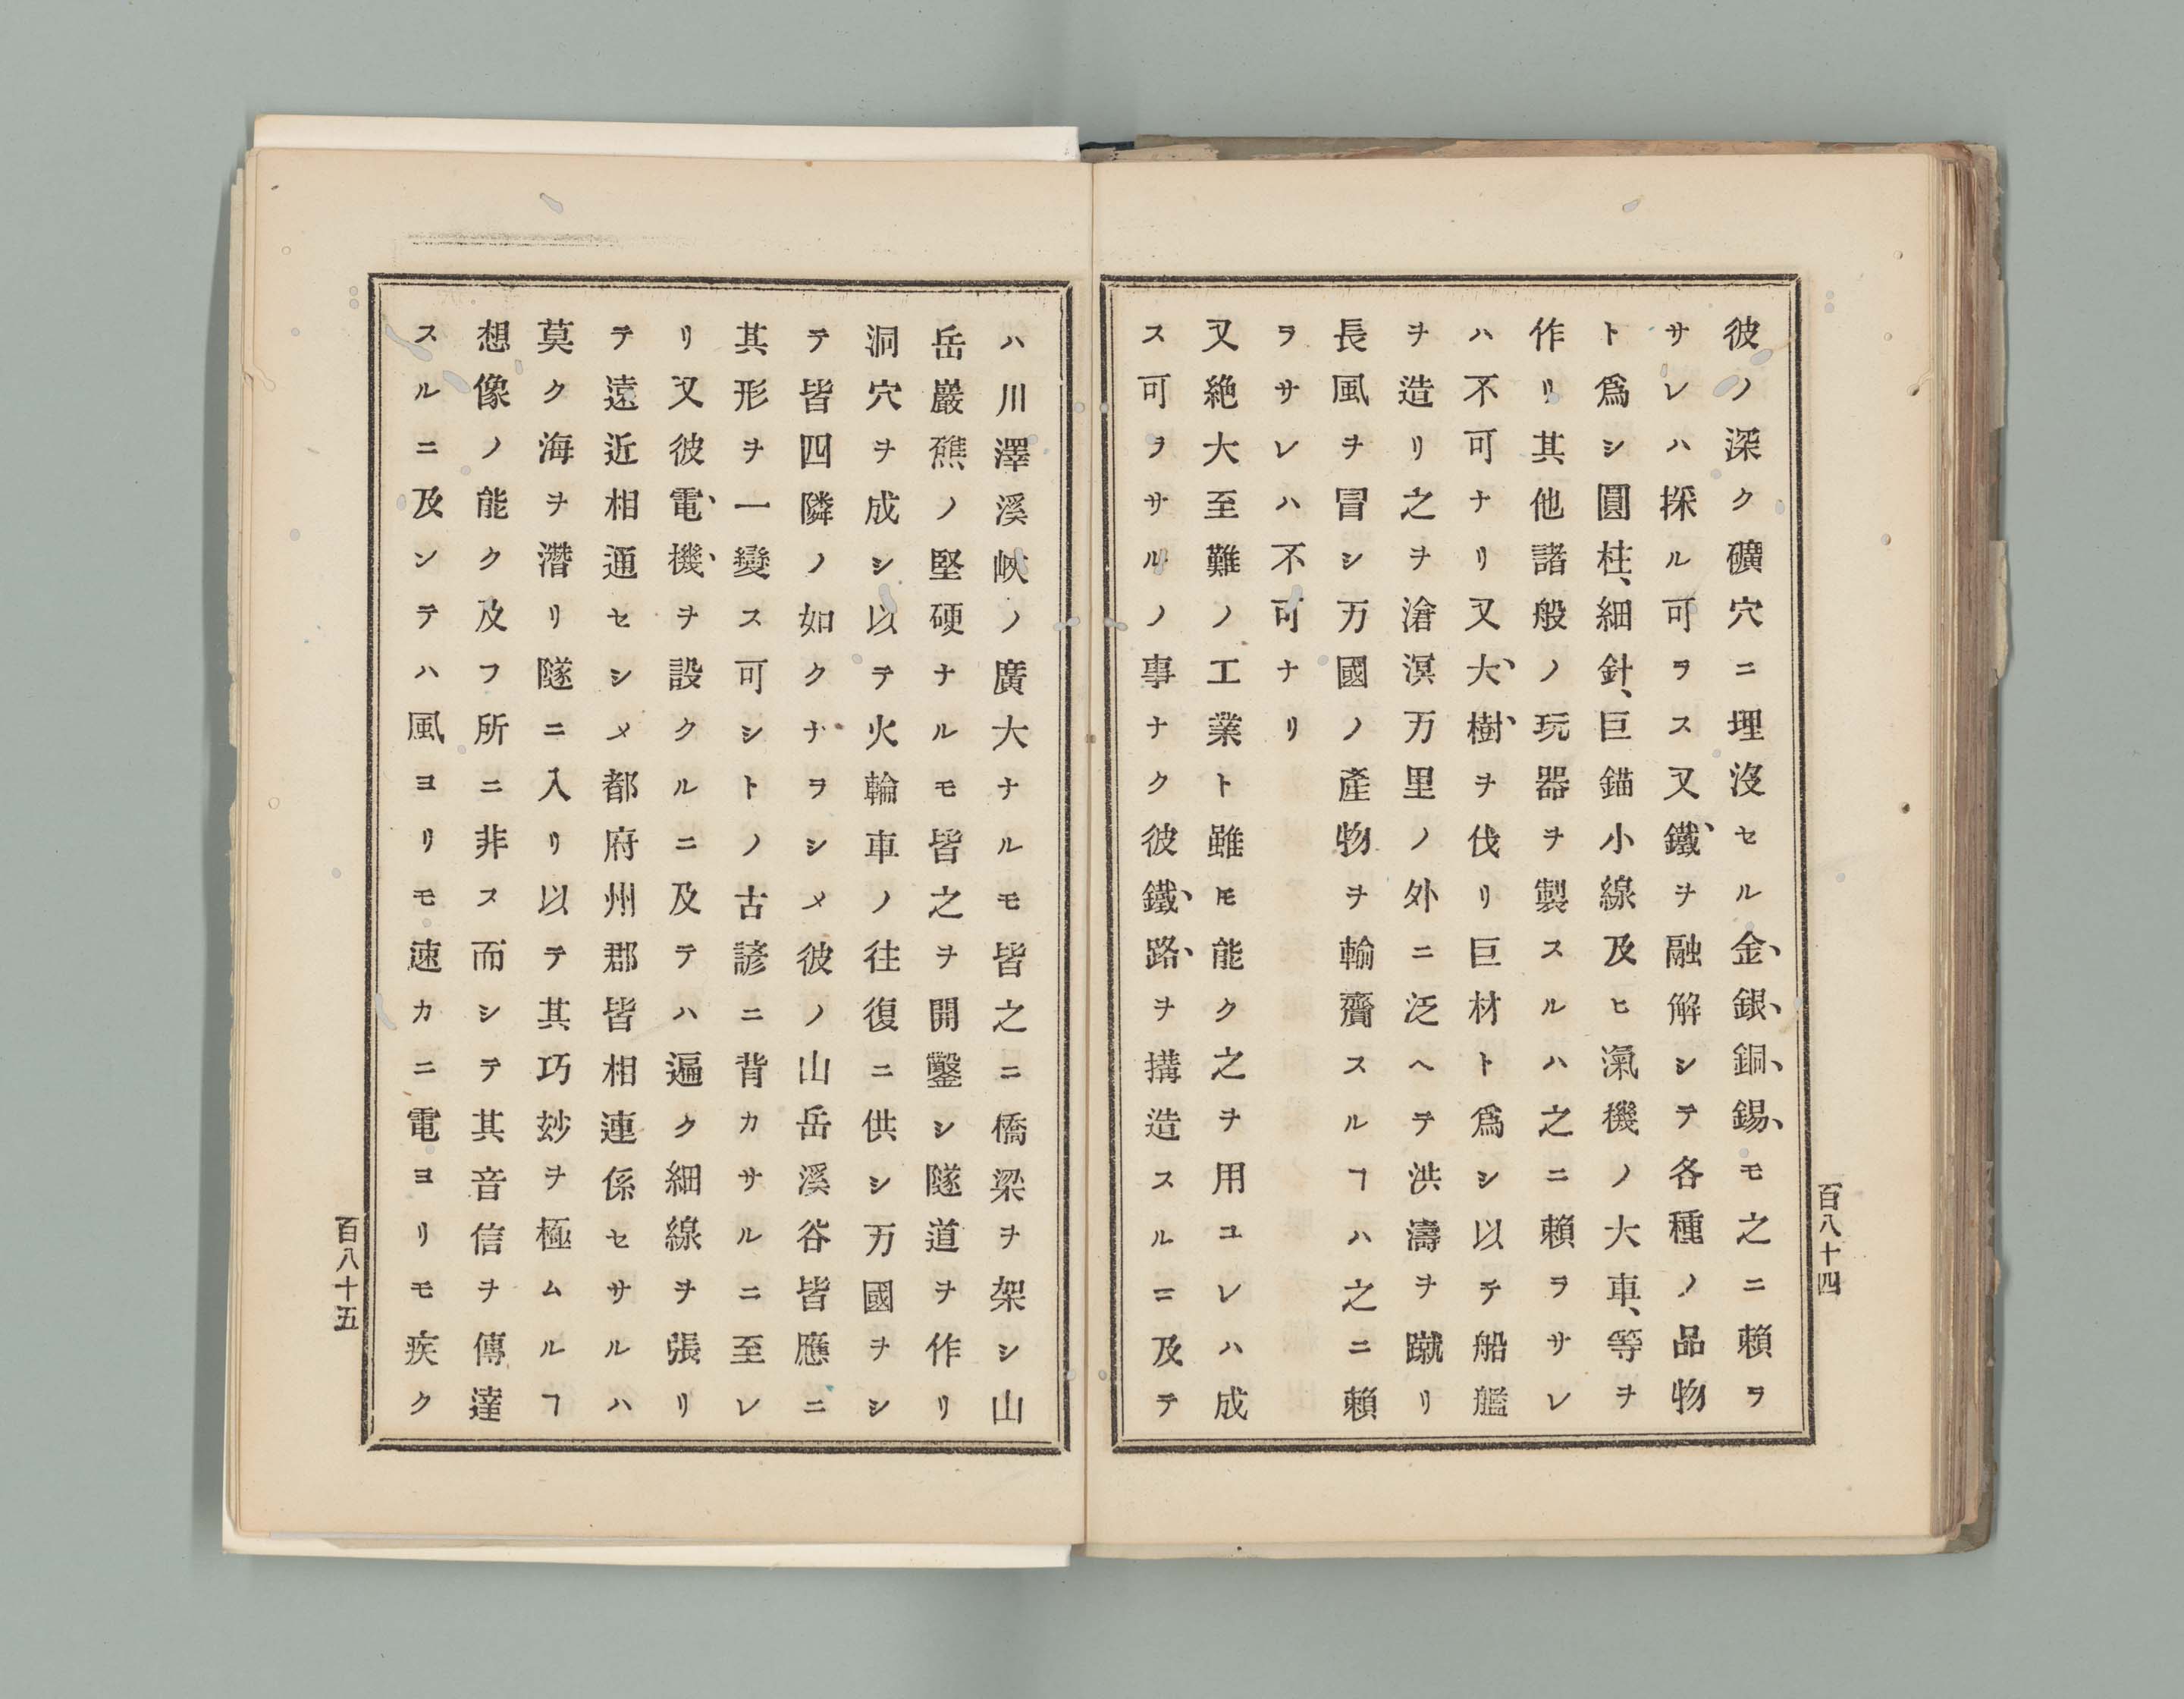 彼ノ深ク礦穴ニ埋沒セル金、銀、銅、錫、モ之ニ賴ラ
サレハ採ル可ラス又鐵、ヲ融解シテ各種ノ品物
ト爲シ圓柱、細針、巨錨小線及ヒ滊機ノ大車、等ヲ
作リ其他諸般ノ玩器ヲ製スルハ之ニ賴ラサレ
ハ不可ナリ又大、樹、ヲ伐リ巨材ト爲シ以テ船艦
ヲ造リ之ヲ滄溟万里ノ外ニ泛ヘテ洪濤ヲ蹴リ
長風ヲ冒シ万國ノ產物ヲ輸齎スルヿハ之ニ賴
ラサレハ不可ナリ
又絶大至難ノ工業ト雖𪜈能ク之ヲ用ユレハ成
ス可ラサルノ事ナク彼鐵、路、ヲ搆造スルニ及テ
百八十四
ハ川澤溪峽ノ廣大ナルモ皆之ニ橋梁ヲ架シ山
岳巖礁ノ堅硬ナルモ皆之ヲ開鑿シ隧道ヲ作リ
洞穴ヲ成シ以テ火輪車ノ往復ニ供シ万國ヲシ
テ皆四隣ノ如クナヲシメ彼ノ山岳溪谷皆應ニ
其形ヲ一變ス可シトノ古諺ニ背カサルニ至レ
リ又彼電、機、ヲ設クルニ及テハ遍ク細線ヲ張リ
テ遠近相通セシメ都府州郡皆相連係セサルハ
莫ク海ヲ潛リ隧ニ入リ以テ其巧妙ヲ極ムルヿ
想像ノ能ク及フ所ニ非ス而シテ其音信ヲ傳達
スルニ及ンテハ風ヨリモ速カニ電ヨリモ疾ク
百八十五